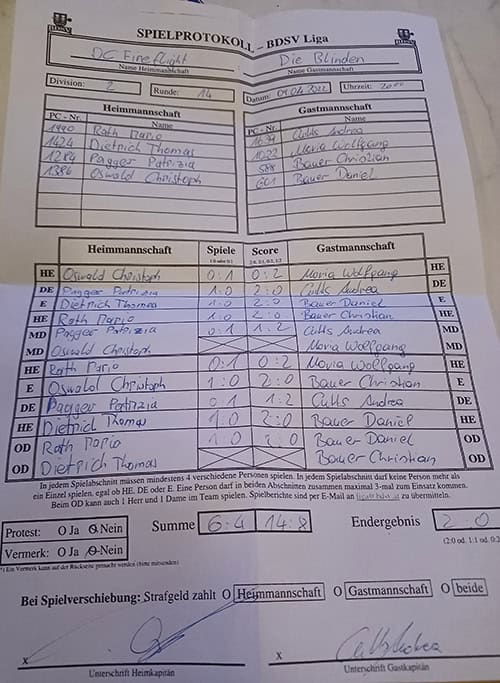 BDSV
SPIELPROTOKOLL – BDSV Liga
BDSV
DC Fireflight
Die Blinden
Name Heimmannschaft
Name Gastmannschaft
Division: 2
Runde: 14
Datum: 09.04.2022
Uhrzeit: 2000
Heimmannschaft
Gastmannschaft
PC - Nr. Name
PC - Nr. Name
1990 Rath Mario
Cults Andrea
1424 Dietrich Thomas
1022 Moria Wolfgang
1284 Pagger Patrizia
588 Bauer Christian
1386 Oswald Christoph
601 Bauer Daniel
Heimmannschaft Spiele Score Gastmannschaft
1:0 oder 0:1 2:0, 2:1, 0:2, 1:2
HE Oswald Christoph 0:1 0:2 Moria Wolfgang HE
DE Pagger Patrizia 1:0 2:0 Cults Andrea DE
E Dietrich Thomas 1:0 2:0 Bauer Daniel E
HE Rath Mario 1:0 2:0 Bauer Christian HE
MD Pagger Patrizia 0:1 1:2 Cults Andrea MD
MD Oswald Christoph Moria Wolfgang MD
HE Rath Mario 0:1 0:2 Moria Wolfgang HE
E Oswald Christoph 1:0 2:0 Bauer Christian E
DE Pagger Patrizia 0:1 1:2 Cults Andrea DE
HE Dietrich Thomas 1:0 2:0 Bauer Daniel HE
OD Rath Mario 1:0 2:0 Bauer Daniel OD
OD Dietrich Thomas Bauer Christian OD
In jedem Spielabschnitt müssen mindestens 4 verschiedene Personen spielen. In jedem Spielabschnitt darf keine Person mehr als
ein Einzel spielen, egal ob HE, DE oder E. Eine Person darf in beiden Abschnitten zusammen maximal 3-mal zum Einsatz kommen.
Beim OD kann auch 1 Herr und 1 Dame im Team spielen. Spielberichte sind per E-Mail an zu übermitteln.
Protest: O Ja O Nein
Summe 6:4 14:8 Endergebnis 2:0
Vermerk: O Ja O Nein
(2:0 od. 1:1 od. 0:2)
*) Ein Vermerk kann auf der Rückseite gemacht werden (bitte mitsenden)
Bei Spielverschiebung: Strafgeld zahlt O Heimmannschaft O Gastmannschaft O beide
x
x Cults Andrea
Unterschrift Heimkapitän
Unterschrift Gastkapitän